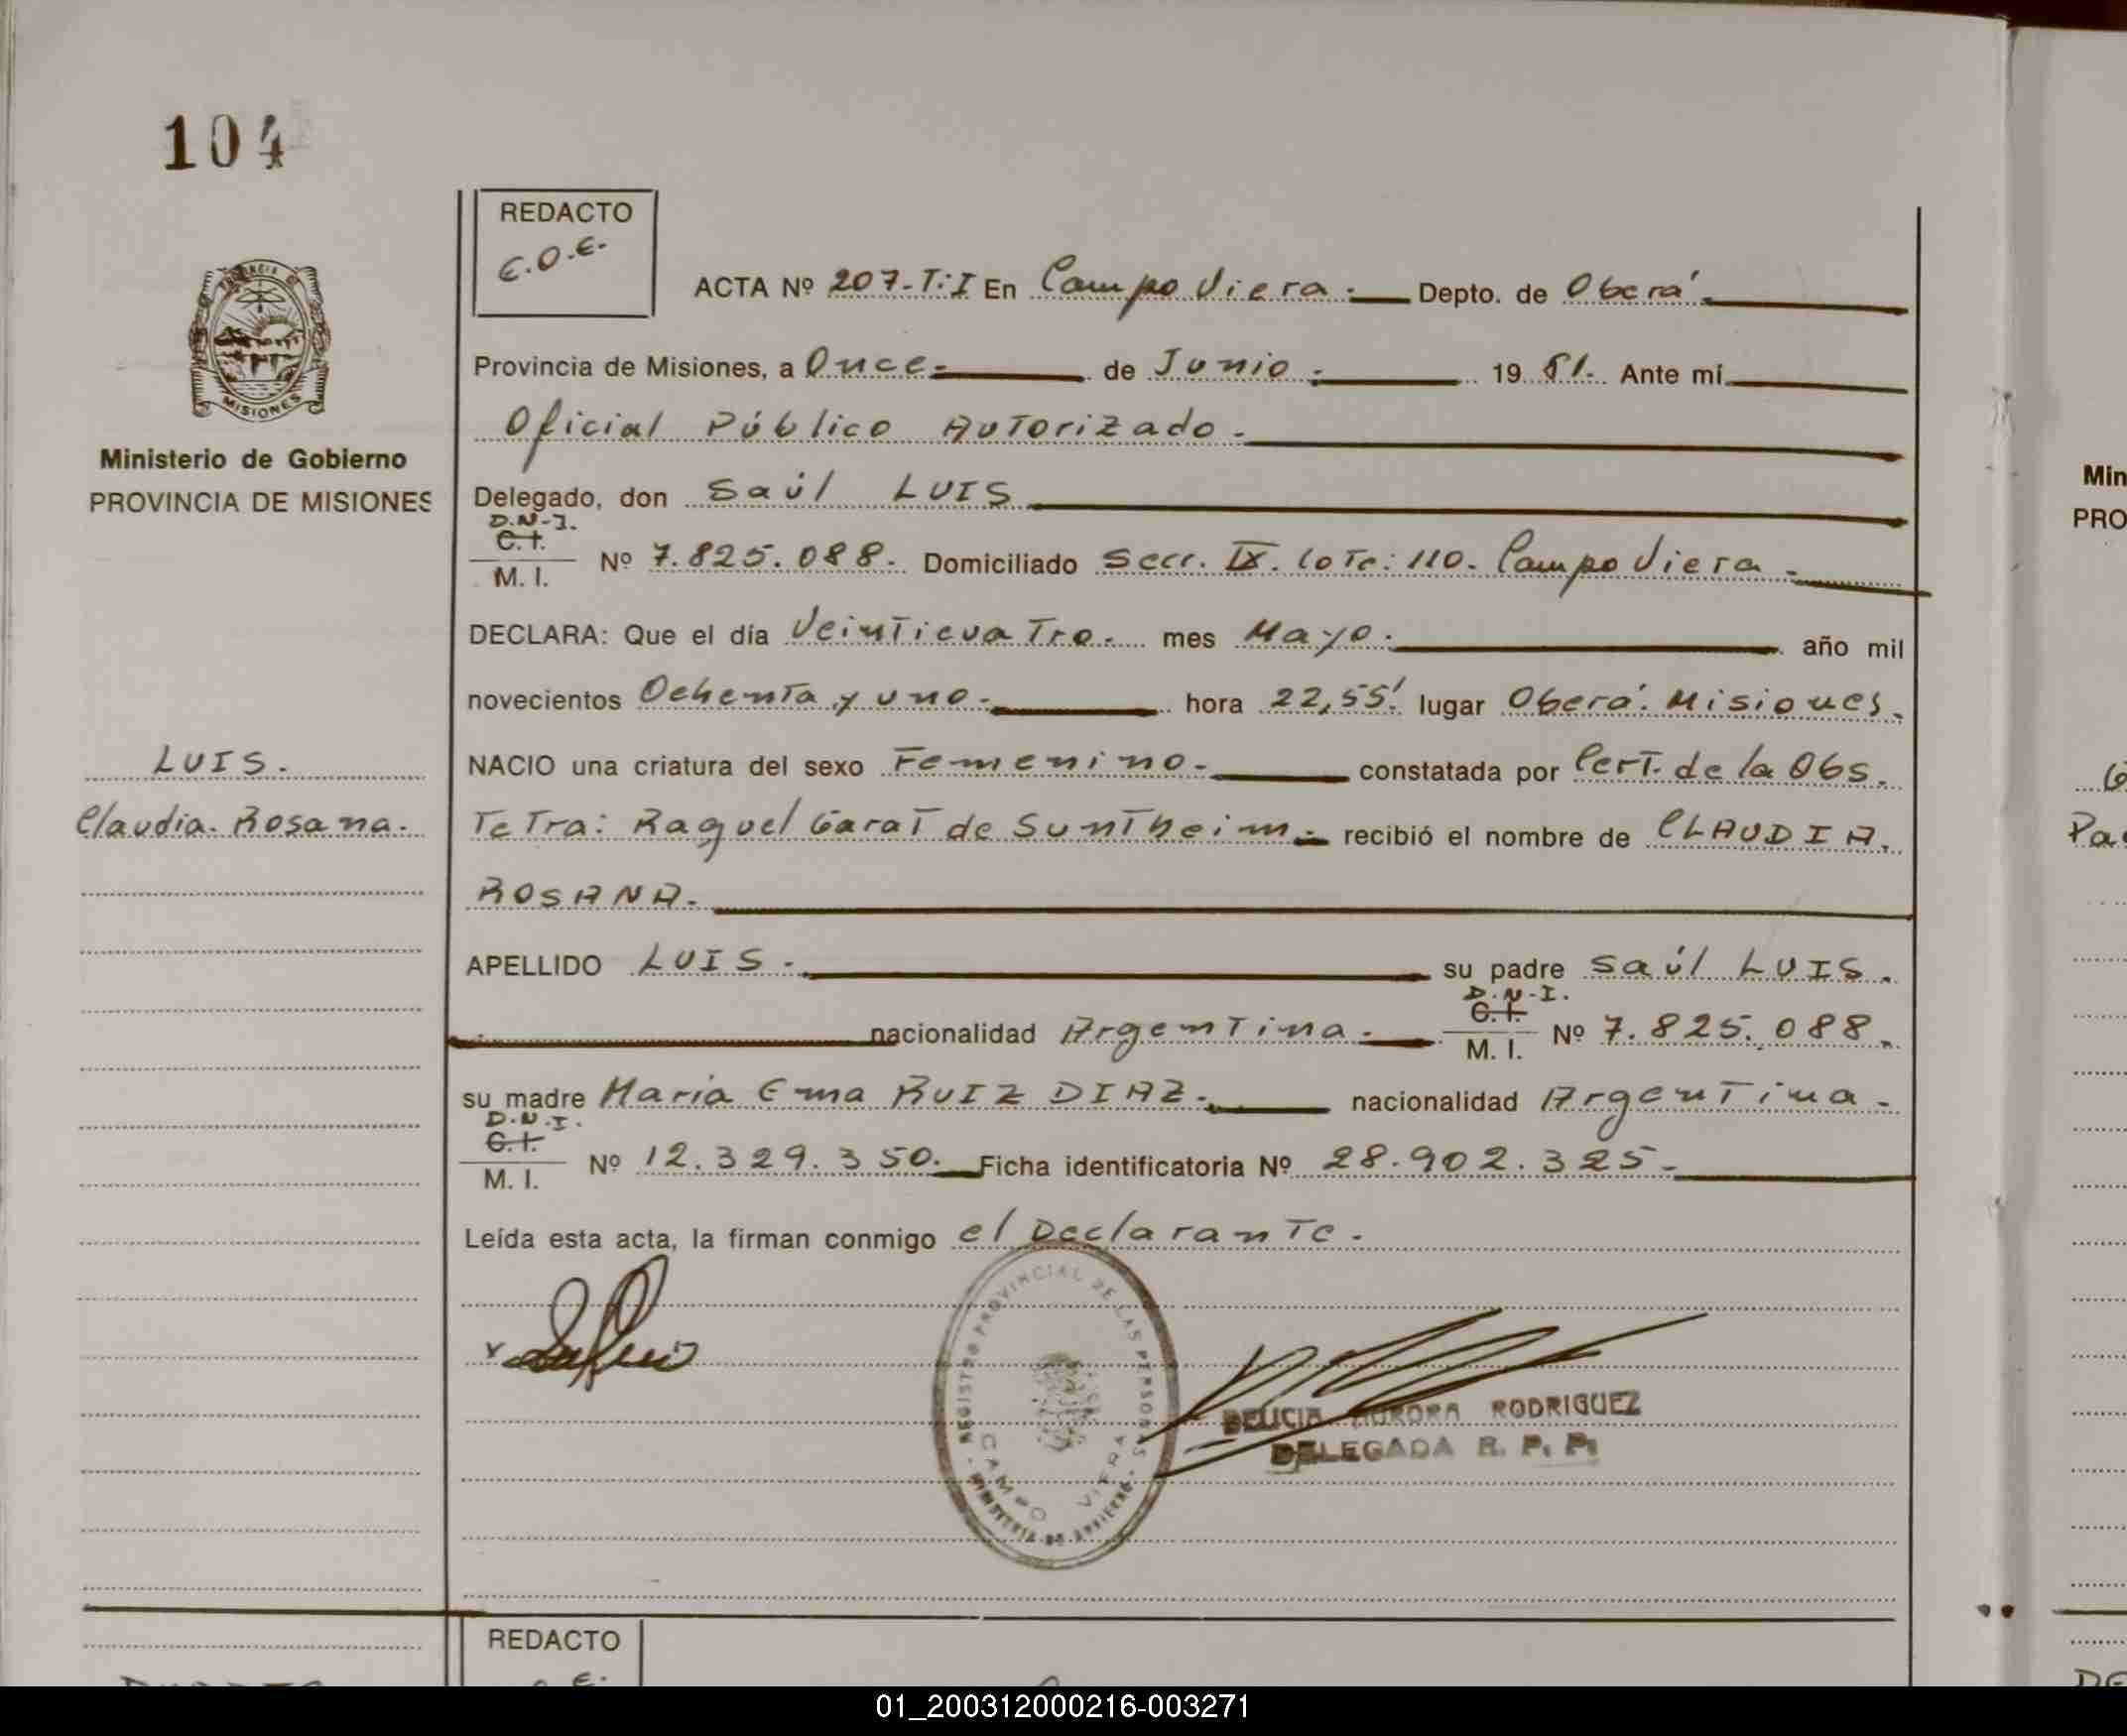 104
REDACTO
E.O.E.
ACTA Nº 207-T:I En Campo Viera.- Depto. de Oberá.
Provincia de Misiones, a Once.- de Junio.- 19 81. Ante mí
Oficial Público Autorizado.-
Ministerio de Gobierno
PROVINCIA DE MISIONES
Delegado, don Saúl LUIS
D.N.I.
C.I.
M. I. Nº 7.825.088. Domiciliado Secc. IX. Lote: 110. Campo Viera.-
DECLARA: Que el día Veinticuatro. mes Mayo. año mil
novecientos Ochenta y uno.- hora 22,55' lugar Oberá. Misiones.
NACIO una criatura del sexo Femenino.- constatada por Cert. de la Obs.
Tetra: Raquel Garat de Suntheim.- recibió el nombre de CLAUDIA.
ROSANA.-
LUIS.
Claudia. Rosana.
APELLIDO LUIS.- su padre Saúl LUIS.
nacionalidad Argentina.-
D.N.I.
C.I.
M. I. Nº 7.825.088.
su madre María Ema RUIZ DIAZ.- nacionalidad Argentina.-
D.N.I.
C.I.
M. I. Nº 12.329.350. Ficha identificatoria Nº 28.902.325.-
Leída esta acta, la firman conmigo el Declarante.-
REGISTRO PROVINCIAL DE LAS PERSONAS
CAMPO VIERA
MINISTERIO DE GOBIERNO
DELICIA AURORA RODRIGUEZ
DELEGADA R. P. P.
REDACTO
Min
PRO
01_200312000216-003271